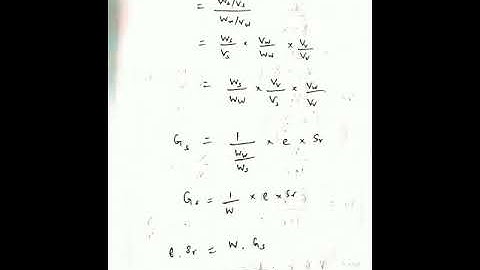 = Ws/Vs / Ww/Vw
= Ws/Vs × Vw/Ww × Vv/Vv
= Ws/Ww × Vv/Vs × Vw/Vv
Gs = 1 / (Ww/Ws) × e × Sr
Gs = 1/W × e × Sr
e . Sr = W . Gs